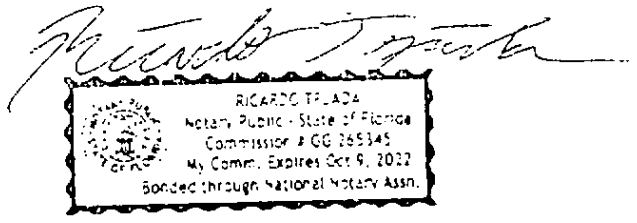 Ricardo
RICARDO
Notary Public - State of Florida
Commission # GG 265345
My Comm. Expires Oct 9, 2022
Bonded through National Notary Assn.